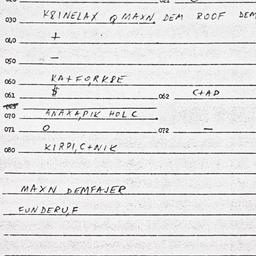 030 K8INELAX Q MAXN DEM ROOF DEM
040 +
050 -
060 KA+FO,RK8E
061 $ 062 C+AD
070 ANAXA,PIK HOLC
071 O 072 -
080 KIRPI,C+NIK
MAXN DEMFAJER
FUNDERU,F